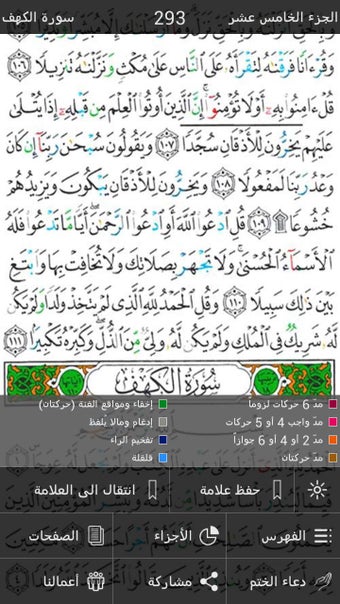 الجزء الخامس عشر 293 سورة الكهف
وَقُرْءَانًا فَرَقْنَٰهُ لِتَقْرَأَهُۥ عَلَى ٱلنَّاسِ عَلَىٰ مُكْثٍ وَنَزَّلْنَٰهُ تَنزِيلًا ﴿١٠٦﴾
قُلْ ءَامِنُوا۟ بِهِۦٓ أَوْ لَا تُؤْمِنُوٓا۟ ۚ إِنَّ ٱلَّذِينَ أُوتُوا۟ ٱلْعِلْمَ مِن قَبْلِهِۦٓ إِذَا يُتْلَىٰ
عَلَيْهِمْ يَخِرُّونَ لِلْأَذْقَانِ سُجَّدًا ﴿١٠٧﴾ وَيَقُولُونَ سُبْحَٰنَ رَبِّنَآ إِن كَانَ
وَعْدُ رَبِّنَا لَمَفْعُولًا ﴿١٠٨﴾ وَيَخِرُّونَ لِلْأَذْقَانِ يَبْكُونَ وَيَزِيدُهُمْ
خُشُوعًا ۩ ﴿١٠٩﴾ قُلِ ٱدْعُوا۟ ٱللَّهَ أَوِ ٱدْعُوا۟ ٱلرَّحْمَٰنَ ۖ أَيًّا مَّا تَدْعُوا۟ فَلَهُ
ٱلْأَسْمَآءُ ٱلْحُسْنَىٰ ۚ وَلَا تَجْهَرْ بِصَلَاتِكَ وَلَا تُخَافِتْ بِهَا وَٱبْتَغِ
بَيْنَ ذَٰلِكَ سَبِيلًا ﴿١١٠﴾ وَقُلِ ٱلْحَمْدُ لِلَّهِ ٱلَّذِى لَمْ يَتَّخِذْ وَلَدًا وَلَمْ يَكُن
لَّهُۥ شَرِيكٌ فِى ٱلْمُلْكِ وَلَمْ يَكُن لَّهُۥ وَلِىٌّ مِّنَ ٱلذُّلِّ ۖ وَكَبِّرْهُ تَكْبِيرًۢا ﴿١١١﴾
سُورَةُ الْكَهْفِ
مدّ 6 حركات لزوماً إخفاء ومواقع الغنة (حركتان)
مدّ واجب 4 أو 5 حركات إدغام ومالا يلفظ
مدّ 2 أو 4 أو 6 جوازاً تفخيم الراء
مدّ حركتان قلقلة
حفظ علامة انتقال الى العلامة
الفهرس الأجزاء الصفحات
دعاء الختم مشاركة أعمالنا